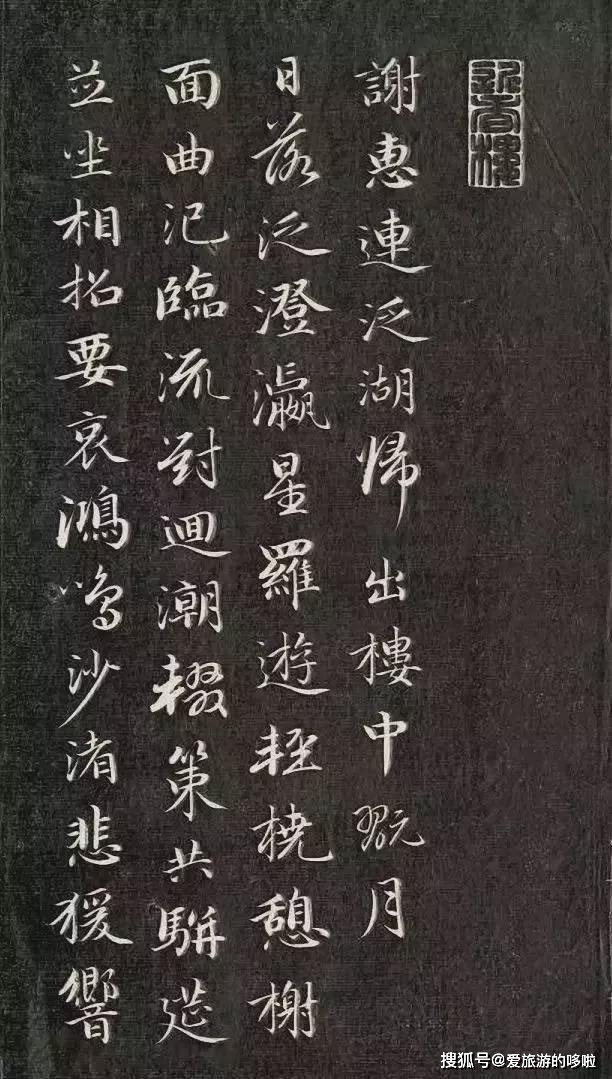 謝惠連泛湖歸出樓中翫月
日落泛澄瀛星羅遊輕橈憩榭
面曲汜臨流對迴潮輟策共駢筵
並坐相招要哀鴻鳴沙渚悲猨響
搜狐号@爱旅游的哆啦